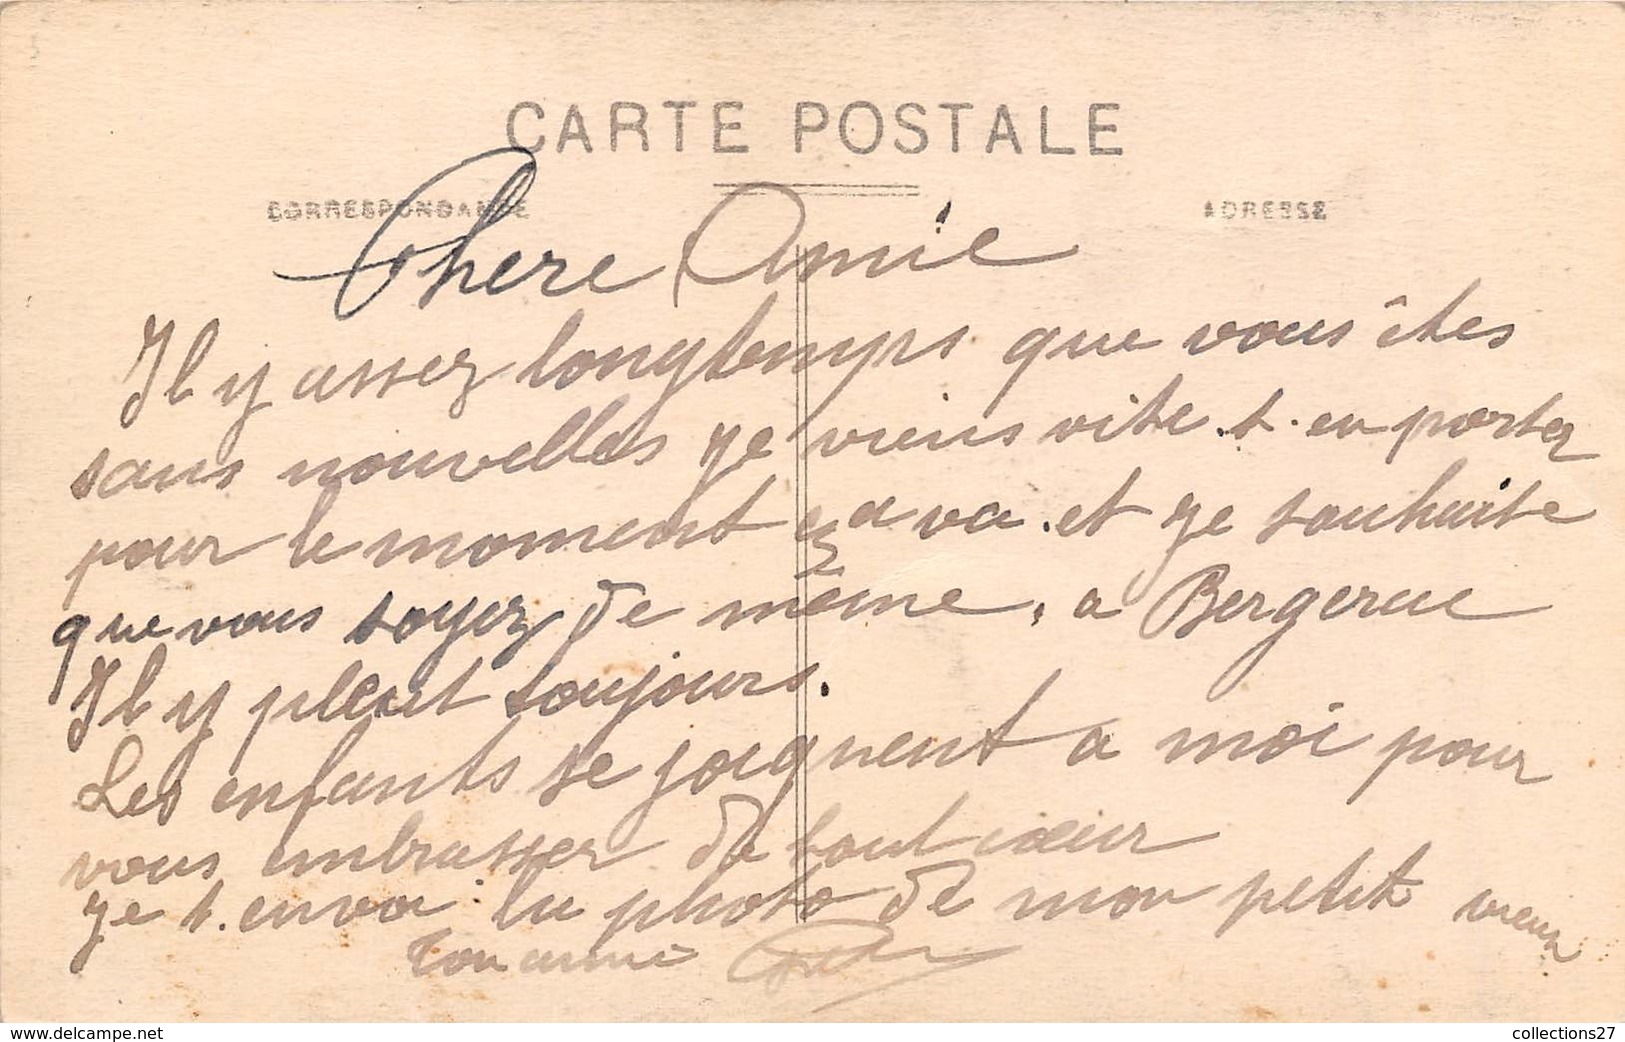 CARTE POSTALE
CORRESPONDANCE
ADRESSE
Chere Amie
Il y assez longtemps que vous êtes
sans nouvelles je viens vite t. en porter
pour le moment ça va . et je souhaite
que vous soyez de même, a Bergerac
Il y pleut toujours.
Les enfants se joignent a moi pour
vous embrasser de tout cœur
je t. envoi la photo de mon petit vieux
Ton amie
www.delcampe.net
collections27